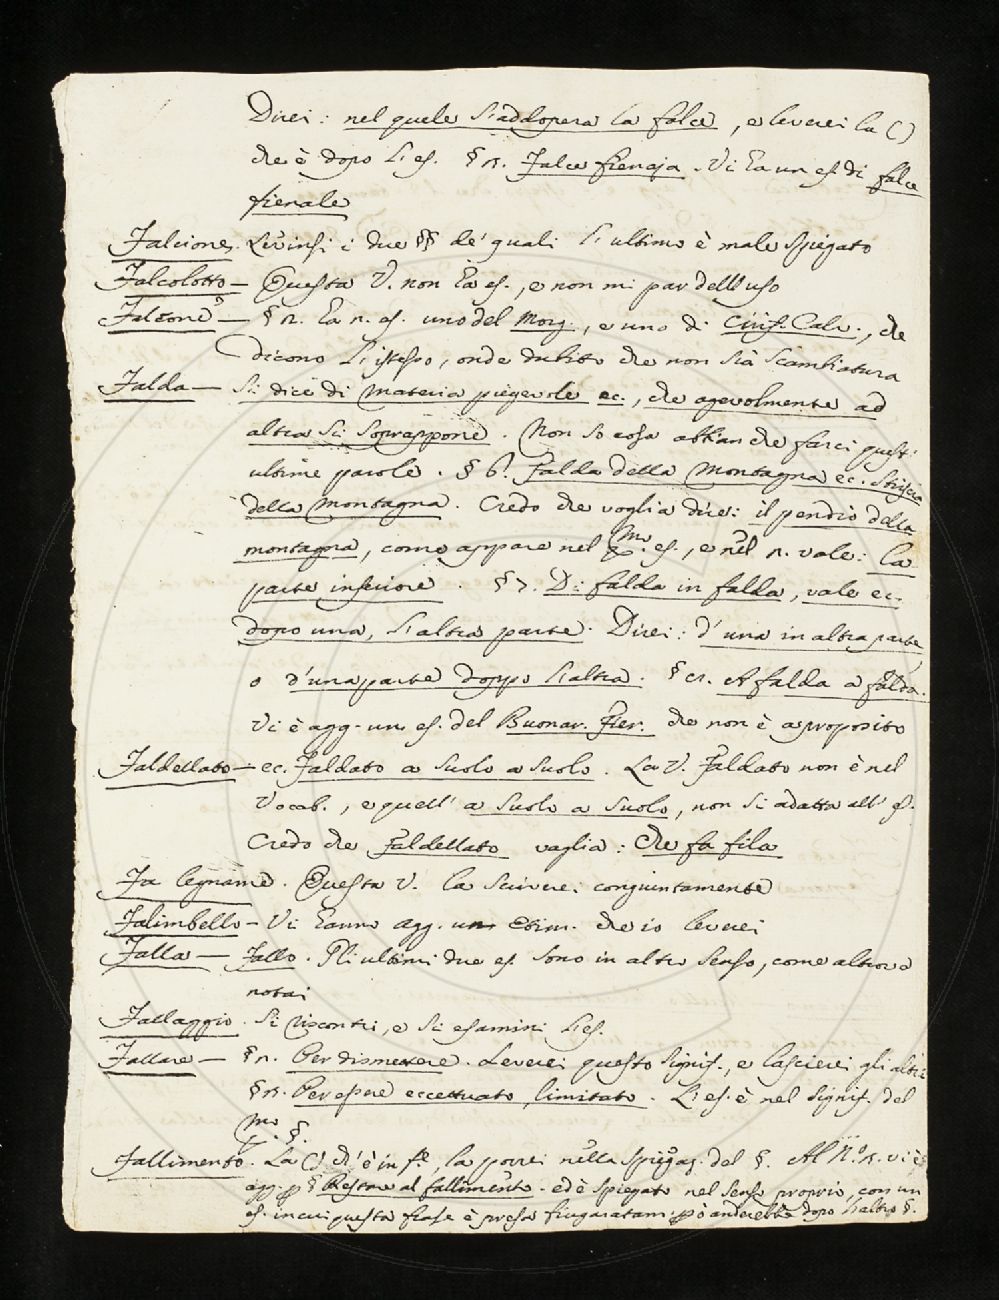 Direi: nel quale s'addopera la falce, e leverei la ( )
che è dopo l'es. § n. Falce fienaja. Vi ha un es. di falce
fienale
Falcione. Levinsi i due §§ de' quali l'ultimo è male spiegato
Falcolotto — Questa V. non ha es., e non mi par dell'uso
Falcone — § n. ha n. es. uno del Morg., e uno di Cirif. Calv., che
dicono l'istesso, onde dubito che non sia scambiatura
Falda — Si dice di materia piegevole ec., che agevolmente ad
altra si soprappone. Non so cosa abbian che farci quest'
ultime parole. § 6. Falda della montagna ec. Striscia
della montagna. Credo che voglia dire: il pendio della
montagna, come appare nel es., e nel n. vale: la
parte inferiore. § 7. Di falda in falda, vale ec.
dopo una, l'altra parte. Direi: d'una in altra parte,
o d'una parte doppo l'altra. § A falda a falda.
Vi è agg. un es. del Buonar. Fier. che non è a proposito
Faldellato — ec. Faldato a suolo a suolo. La V. Faldato non è nel
Vocab., e quell' a suolo a suolo, non si adatta all' es.
Credo che Faldellato vaglia: che fa fila
Fa legname. Questa V. la scriverei congiuntamente
Falimbello — Vi hanno agg. un etim. che io leverei
Falla — Fallo. Gli ultimi due es. sono in altro senso, come altrove
notai
Fallaggio. Si riscontri, e si esamini l'es.
Fallare — § n. Per dismettere. Leverei questo signif., e lascierei gli altri
§ n. Per essere eccettuato, limitato. L'es. è nel signif. del
§.
Fallimento. La ( ) ch'è in f.e, la porrei nella spiegaz. del §. Al N.o n. vi è
agg. p § Restare al fallimento. ed è spiegato nel senso proprio, con un
es. in cui questa frase è presa figuratam. però anderebbe dopo l'altro §.